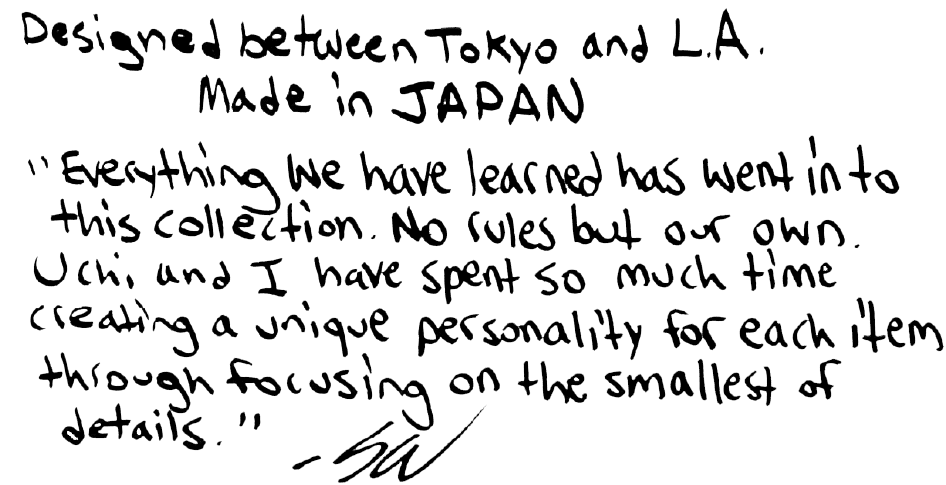 Designed between Tokyo and L.A.
Made in JAPAN
"Everything We have learned has went in to
this collection. No rules but our own.
Uchi, and I have spent so much time
creating a unique personality for each item
through focusing on the smallest of
details."
-SW